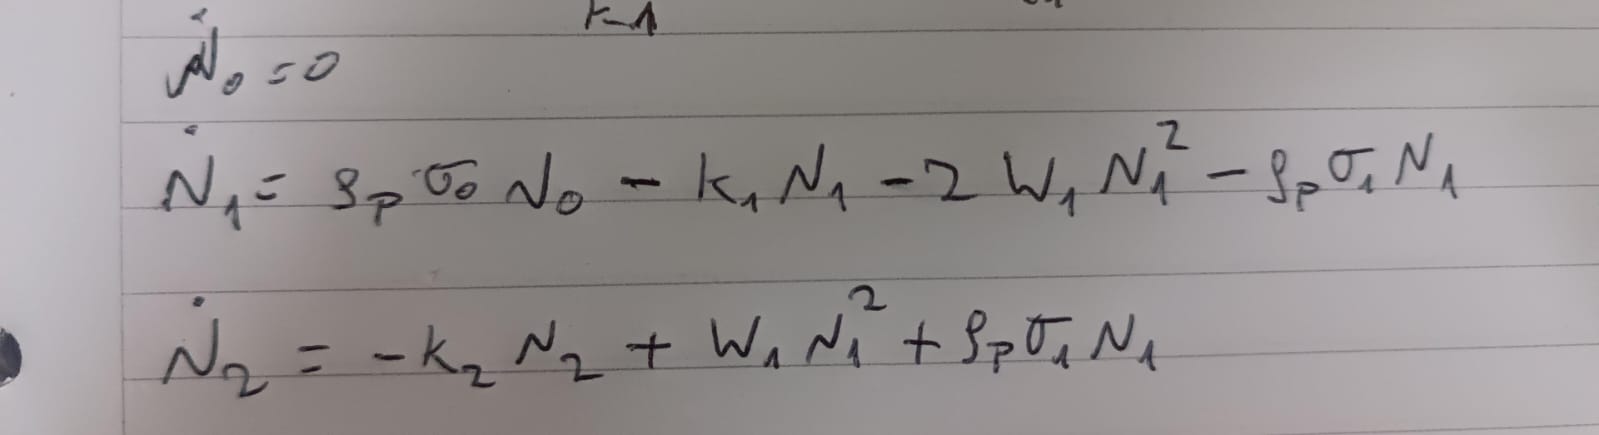 k-1
Ṅ₀ = 0
Ṅ₁ = ρₚ σ₀ N₀ - k₁ N₁ - 2 W₁ N₁² - ρₚ σ₁ N₁
Ṅ₂ = -k₂ N₂ + W₁ N₁² + ρₚ σ₁ N₁